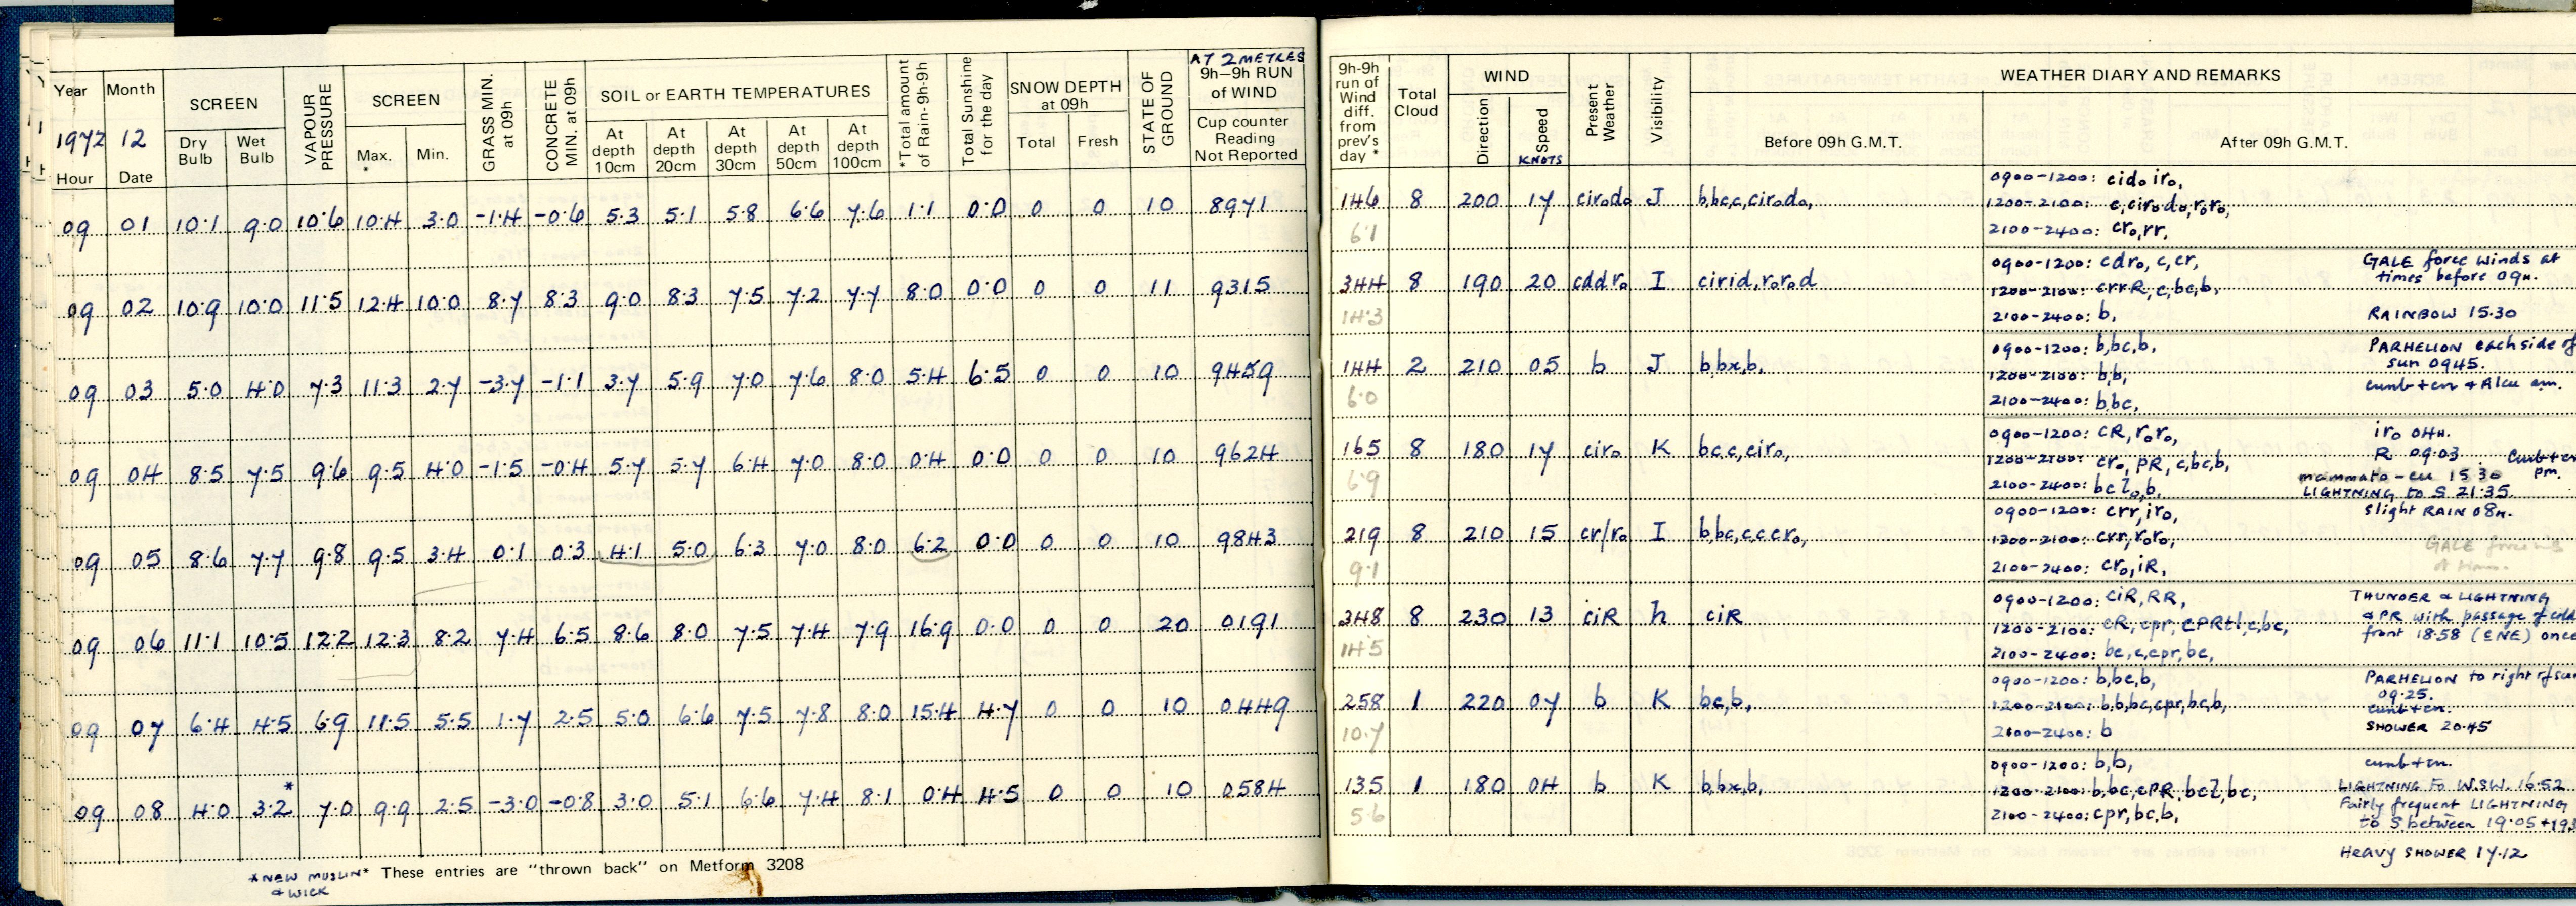 Year Month SCREEN VAPOUR PRESSURE SCREEN GRASS MIN. at 09h CONCRETE MIN. at 09h SOIL or EARTH TEMPERATURES *Total amount of Rain-9h-9h Total Sunshine for the day SNOW DEPTH at 09h STATE OF GROUND AT 2 METRES 9h–9h RUN of WIND
1972 12 Dry Bulb Wet Bulb Max. * Min. At depth 10cm At depth 20cm At depth 30cm At depth 50cm At depth 100cm Total Fresh Cup counter Reading Not Reported
Hour Date
09 01 10·1 9·0 10·6 10·4 3·0 -1·4 -0·6 5·3 5·1 5·8 6·6 7·6 1·1 0·0 0 0 10 8971
09 02 10·9 10·0 11·5 12·4 10·0 8·7 8·3 9·0 8·3 7·5 7·2 7·7 8·0 0·0 0 0 11 9315
09 03 5·0 4·0 7·3 11·3 2·7 -3·7 -1·1 3·7 5·9 7·0 7·6 8·0 5·4 6·5 0 0 10 9459
09 04 8·5 7·5 9·6 9·5 4·0 -1·5 -0·4 5·7 5·7 6·4 7·0 8·0 0·4 0·0 0 0 10 9624
09 05 8·6 7·7 9·8 9·5 3·4 0·1 0·3 4·1 5·0 6·3 7·0 8·0 6·2 0·0 0 0 10 9843
09 06 11·1 10·5 12·2 12·3 8·2 7·4 6·5 8·6 8·0 7·5 7·4 7·9 16·9 0·0 0 0 20 0191
09 07 6·4 4·5 6·9 11·5 5·5 1·7 2·5 5·0 6·6 7·5 7·8 8·0 15·4 4·7 0 0 10 0449
09 08 4·0 3·2* 7·0 9·9 2·5 -3·0 -0·8 3·0 5·1 6·6 7·4 8·1 0·4 4·5 0 0 10 0584
*NEW MUSLIN & WICK
* These entries are "thrown back" on Metform 3208
9h-9h run of Wind diff. from prev's day * Total Cloud WIND Present Weather Visibility WEATHER DIARY AND REMARKS
Direction Speed KNOTS Before 09h G.M.T. After 09h G.M.T.
146 8 200 17 cir₀d₀ J b,bc,c,cir₀d₀, 0900-1200: cid₀ir₀,
1200-2100: c,cir₀d₀,r₀r₀,
6·1 2100-2400: cr₀,rr,
344 8 190 20 cddr₀ I cirid,r₀r₀d 0900-1200: cdr₀, c, cr, GALE force winds at
1200-2100: crrR,c,bc,b, times before 09h.
14·3 2100-2400: b, RAINBOW 15·30
144 2 210 05 b J b,bx,b, 0900-1200: b,bc,b, PARHELION each side of
1200-2100: b,b, sun 0945.
6·0 2100-2400: b,bc, cumb+cn + Alcu am.
165 8 180 17 cir₀ K bc,c,cir₀, 0900-1200: cR,r₀r₀, ir₀ 04h.
1200-2100: cr₀, PR, c,bc,b, R 09·03 pm.
6·9 2100-2400: bcl₀,b, mammato-cu 15·30
LIGHTNING to S 21·35.
219 8 210 15 cr/r₀ I b,bc,c,c,cr₀, 0900-1200: crr,ir₀, slight RAIN 08h.
1200-2100: crr,r₀r₀, GALE force
9·1 2100-2400: cr₀,iR,
348 8 230 13 ciR h ciR 0900-1200: ciR,RR, THUNDER & LIGHTNING
1200-2100: cR,cpr,cPRtl,c,bc, & PR with passage of cold
14·5 2100-2400: bc,c,cpr,bc, front 18·58 (ENE) once
258 1 220 07 b K bc,b, 0900-1200: b,bc,b, PARHELION to right of sun
09·25.
1200-2100: b,b,bc,cpr,bc,b, cumb+cn.
10·7 2100-2400: b SHOWER 20·45
135 1 180 04 b K b,bx,b, 0900-1200: b,b, cumb+cn.
1200-2100: b,bc,cPR,bcl,bc, LIGHTNING to W.SW. 16·52
5·6 2100-2400: cpr,bc,b, Fairly frequent LIGHTNING
to S between 19·05+
Heavy SHOWER 17·12